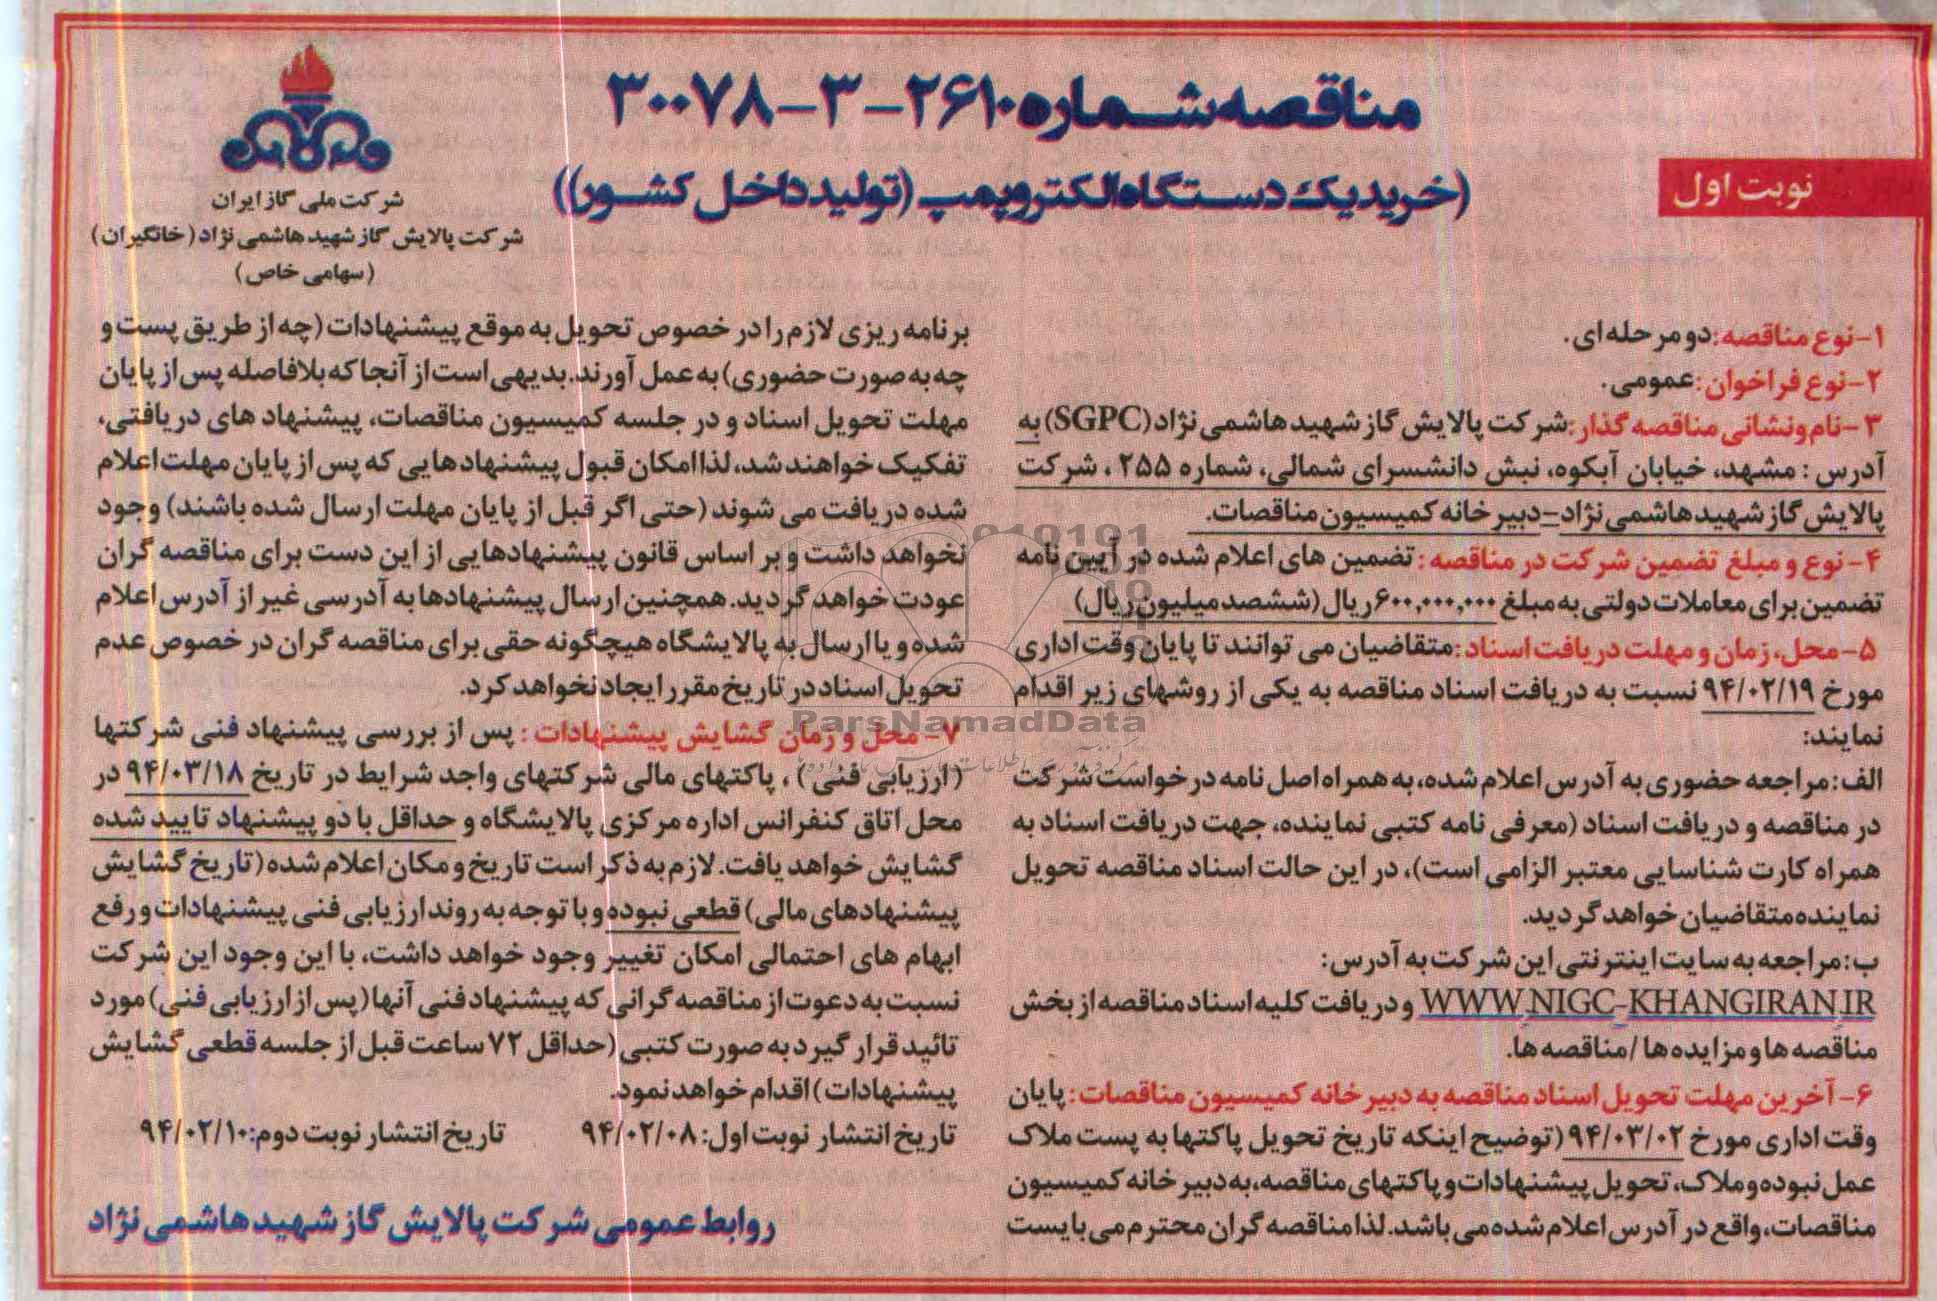 مناقصه شماره ۲۶۱۰-۳-۳۰۰۷۸
(خرید یک دستگاه الکتروپمپ (تولید داخل کشور))
نوبت اول
شرکت ملی گاز ایران
شرکت پالایش گاز شهید هاشمی نژاد (خانگیران)
(سهامی خاص)
۱-نوع مناقصه: دو مرحله ای.
۲-نوع فراخوان: عمومی.
۳-نام ونشانی مناقصه گذار: شرکت پالایش گاز شهید هاشمی نژاد (SGPC) به
آدرس : مشهد، خیابان آبکوه، نبش دانشسرای شمالی، شماره ۲۵۵ ، شرکت
پالایش گاز شهید هاشمی نژاد-دبیرخانه کمیسیون مناقصات.
۴-نوع و مبلغ تضمین شرکت در مناقصه : تضمین های اعلام شده در آیین نامه
تضمین برای معاملات دولتی به مبلغ ۶۰۰,۰۰۰,۰۰۰ ریال (ششصد میلیون ریال)
۵-محل، زمان و مهلت دریافت اسناد: متقاضیان می توانند تا پایان وقت اداری
مورخ ۹۴/۰۲/۱۹ نسبت به دریافت اسناد مناقصه به یکی از روشهای زیر اقدام
نمایند:
الف: مراجعه حضوری به آدرس اعلام شده، به همراه اصل نامه درخواست شرکت
در مناقصه و دریافت اسناد (معرفی نامه کتبی نماینده، جهت دریافت اسناد به
همراه کارت شناسایی معتبر الزامی است)، در این حالت اسناد مناقصه تحویل
نماینده متقاضیان خواهد گردید.
ب: مراجعه به سایت اینترنتی این شرکت به آدرس:
WWW.NIGC-KHANGIRAN.IR و دریافت کلیه اسناد مناقصه از بخش
مناقصه ها و مزایده ها / مناقصه ها.
۶-آخرین مهلت تحویل اسناد مناقصه به دبیرخانه کمیسیون مناقصات: پایان
وقت اداری مورخ ۹۴/۰۳/۰۲ (توضیح اینکه تاریخ تحویل پاکتها به پست ملاک
عمل نبوده و ملاک، تحویل پیشنهادات و پاکتهای مناقصه، به دبیرخانه کمیسیون
مناقصات، واقع در آدرس اعلام شده می باشد. لذا مناقصه گران محترم می بایست
برنامه ریزی لازم را در خصوص تحویل به موقع پیشنهادات (چه از طریق پست و
چه به صورت حضوری) به عمل آورند. بدیهی است از آنجا که بلافاصله پس از پایان
مهلت تحویل اسناد و در جلسه کمیسیون مناقصات، پیشنهاد های دریافتی،
تفکیک خواهند شد، لذا امکان قبول پیشنهادهایی که پس از پایان مهلت اعلام
شده دریافت می شوند (حتی اگر قبل از پایان مهلت ارسال شده باشند) وجود
نخواهد داشت و بر اساس قانون پیشنهادهایی از این دست برای مناقصه گران
عودت خواهد گردید. همچنین ارسال پیشنهادها به آدرسی غیر از آدرس اعلام
شده و یا ارسال به پالایشگاه هیچگونه حقی برای مناقصه گران در خصوص عدم
تحویل اسناد در تاریخ مقرر ایجاد نخواهد کرد.
۷- محل و زمان گشایش پیشنهادات : پس از بررسی پیشنهاد فنی شرکتها
(ارزیابی فنی) ، پاکتهای مالی شرکتهای واجد شرایط در تاریخ ۹۴/۰۳/۱۸ در
محل اتاق کنفرانس اداره مرکزی پالایشگاه و حداقل با دو پیشنهاد تایید شده
گشایش خواهد یافت. لازم به ذکر است تاریخ و مکان اعلام شده (تاریخ گشایش
پیشنهادهای مالی) قطعی نبوده و با توجه به روند ارزیابی فنی پیشنهادات و رفع
ابهام های احتمالی امکان تغییر وجود خواهد داشت، با این وجود این شرکت
نسبت به دعوت از مناقصه گرانی که پیشنهاد فنی آنها (پس از ارزیابی فنی) مورد
تائید قرار گیرد به صورت کتبی (حداقل ۷۲ ساعت قبل از جلسه قطعی گشایش
پیشنهادات) اقدام خواهد نمود.
تاریخ انتشار نوبت اول: ۹۴/۰۲/۰۸ تاریخ انتشار نوبت دوم: ۹۴/۰۲/۱۰
روابط عمومی شرکت پالایش گاز شهید هاشمی نژاد
ParsNamadData